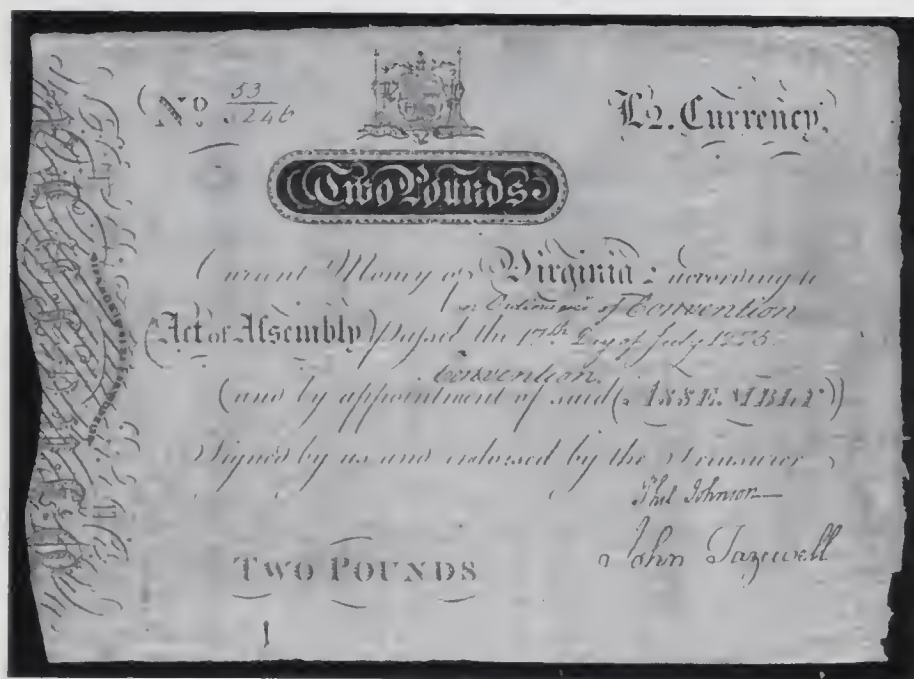 No 53
246
£2. Currency.
Two Pounds
Current Money of Virginia; according to
or Ordinance of Convention
Act of Assembly passed the 17th Day of July 1775.
Convention.
(and by appointment of said (ASSEMBLY))
Signed by us and indorsed by the Treasurer
Phil Johnson
John Tazewell
TWO POUNDS